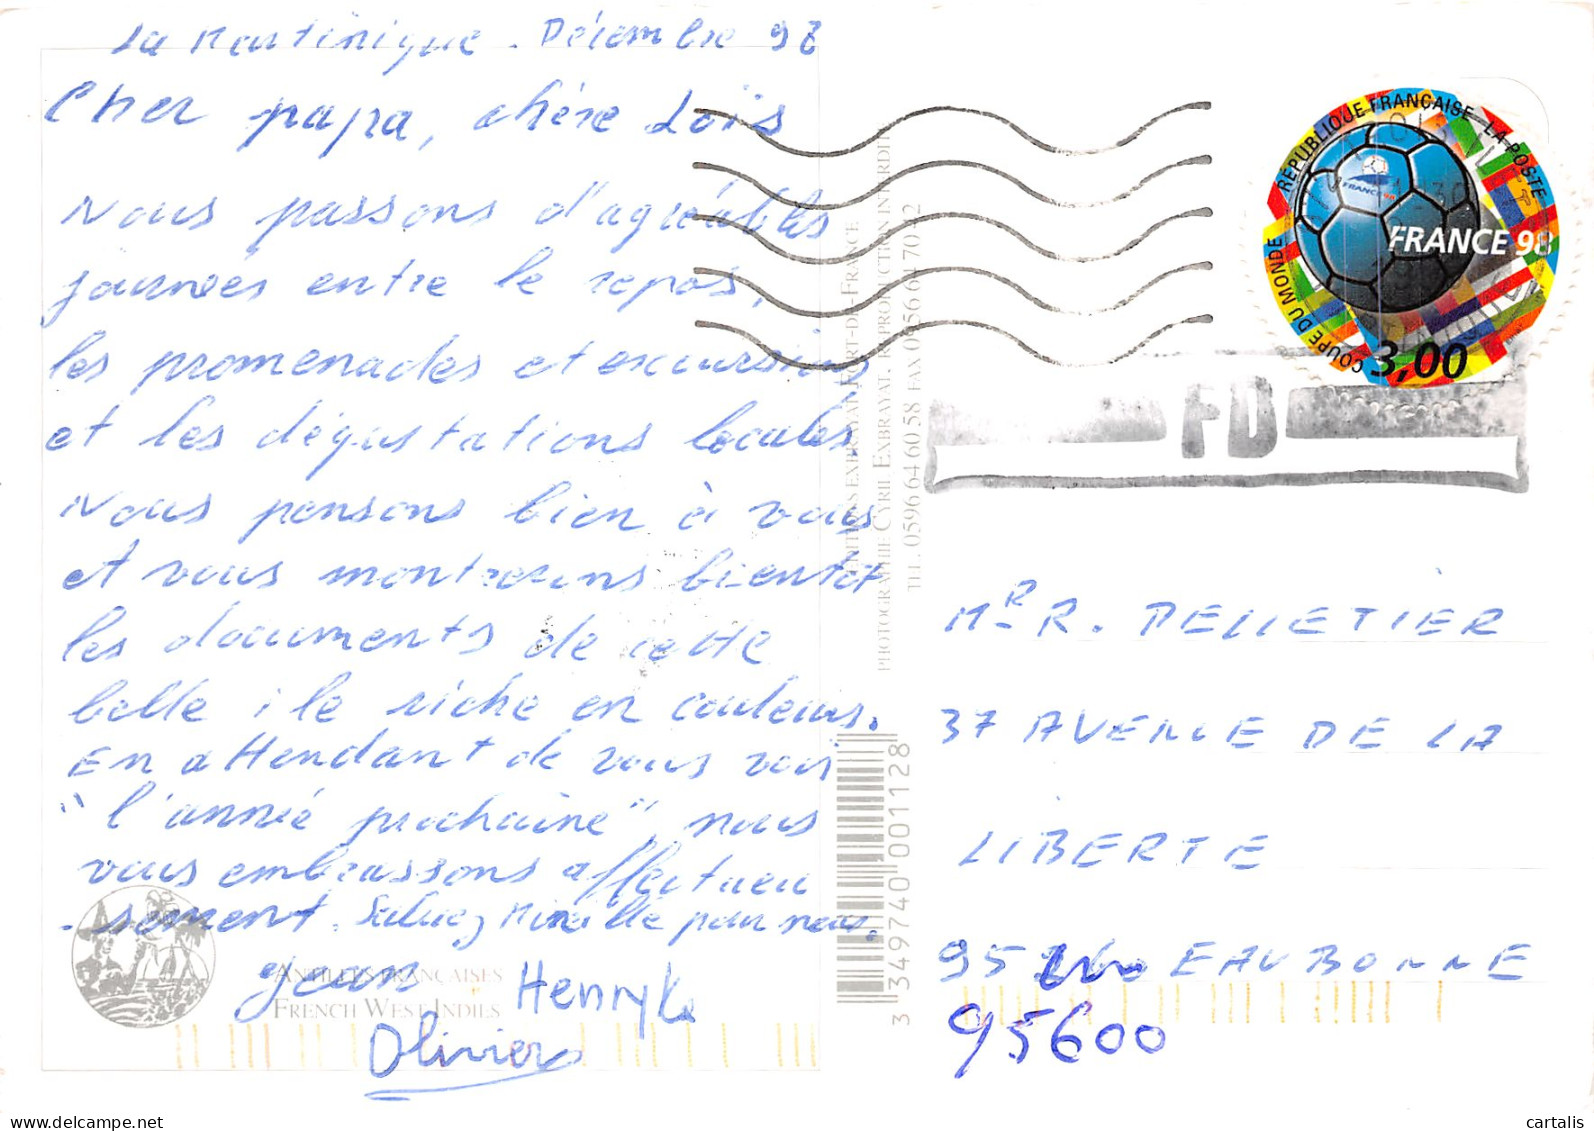 La Martinique. Décembre 98
Cher papa, chère Loïs
Nous passons d'agréables
journées entre le repos,
les promenades et excursions
et les dégustations locales.
Nous pensons bien à vous
et vous montrerons bientôt
les documents de cette
belle île riche en couleurs.
En attendant de vous voir
"l'année prochaine", nous
vous embrassons affectueu
-sement. Saluez Mireille pour nous.
Jean Henryk
Olivier
ANTILLES FRANÇAISES
FRENCH WEST INDIES
PHOTOGRAPHIE CYRIL EXBRAYAT. REPRODUCTION INTERDITE
TEL. 0596 64 60 58 FAX 0656 64 70 42
3 349740 001128
RÉPUBLIQUE FRANÇAISE LA POSTE
COUPE DU MONDE
FRANCE 98
FRANCE 98
3,00
Mr R. PELLETIER
37 AVENUE DE LA
LIBERTE
95 EAUBONNE
95600
cartalis
www.delcampe.net